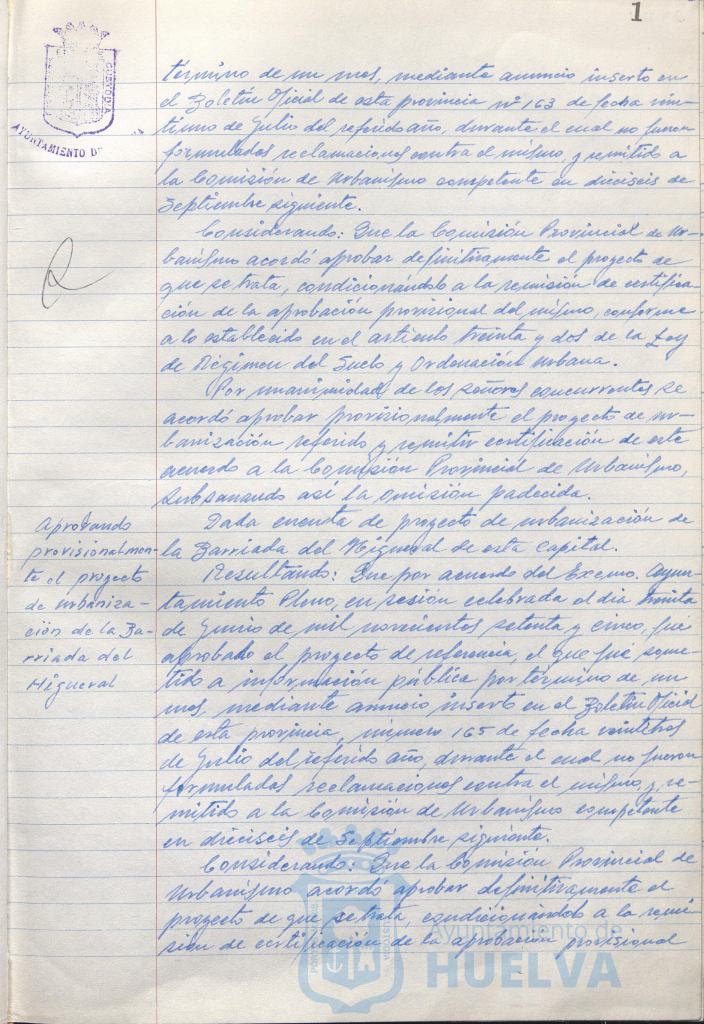 1
CUSTODIA
AYUNTAMIENTO DE
término de un mes, mediante anuncio inserto en
el Boletín Oficial de esta provincia nº 163 de fecha vein-
tiuno de Julio del referido año, durante el cual no fueron
formuladas reclamaciones contra el mismo, y remitido a
la Comisión de Urbanismo competente en dieciseis de
Septiembre siguiente.
Considerando: Que la Comisión Provincial de Ur-
banismo acordó aprobar definitivamente el proyecto de
que se trata, condicionándolo a la remisión de certifica-
ción de la aprobación provisional del mismo, conforme
a lo establecido en el artículo treinta y dos de la Ley
de Régimen del Suelo y Ordenación Urbana.
Por unanimidad de los señores concurrentes se
acordó aprobar provisionalmente el proyecto de ur-
banización referido y remitir certificación de este
acuerdo a la Comisión Provincial de Urbanismo,
subsanando así la omisión padecida.
Aprobando
provisionalmen-
te el proyecto
de urbaniza-
ción de la Ba-
rriada del
Higueral
Dada cuenta de proyecto de urbanización de
la Barriada del Higueral de esta capital.
Resultando: Que por acuerdo del Excmo. Ayun-
tamiento Pleno, en sesión celebrada el día treinta
de Junio de mil novecientos setenta y cinco, fué
aprobado el proyecto de referencia, el que fué some-
tido a información pública por término de un
mes, mediante anuncio inserto en el Boletín Oficial
de esta provincia, número 165 de fecha veintitres
de Julio del referido año, durante el cual no fueron
formuladas reclamaciones contra el mismo, y re-
mitido a la Comisión de Urbanismo competente
en dieciseis de Septiembre siguiente.
Considerando: Que la Comisión Provincial de
Urbanismo acordó aprobar definitivamente el
proyecto de que se trata, condicionándolo a la remi-
sión de certificación de la aprobación provisional
Ayuntamiento de
HUELVA